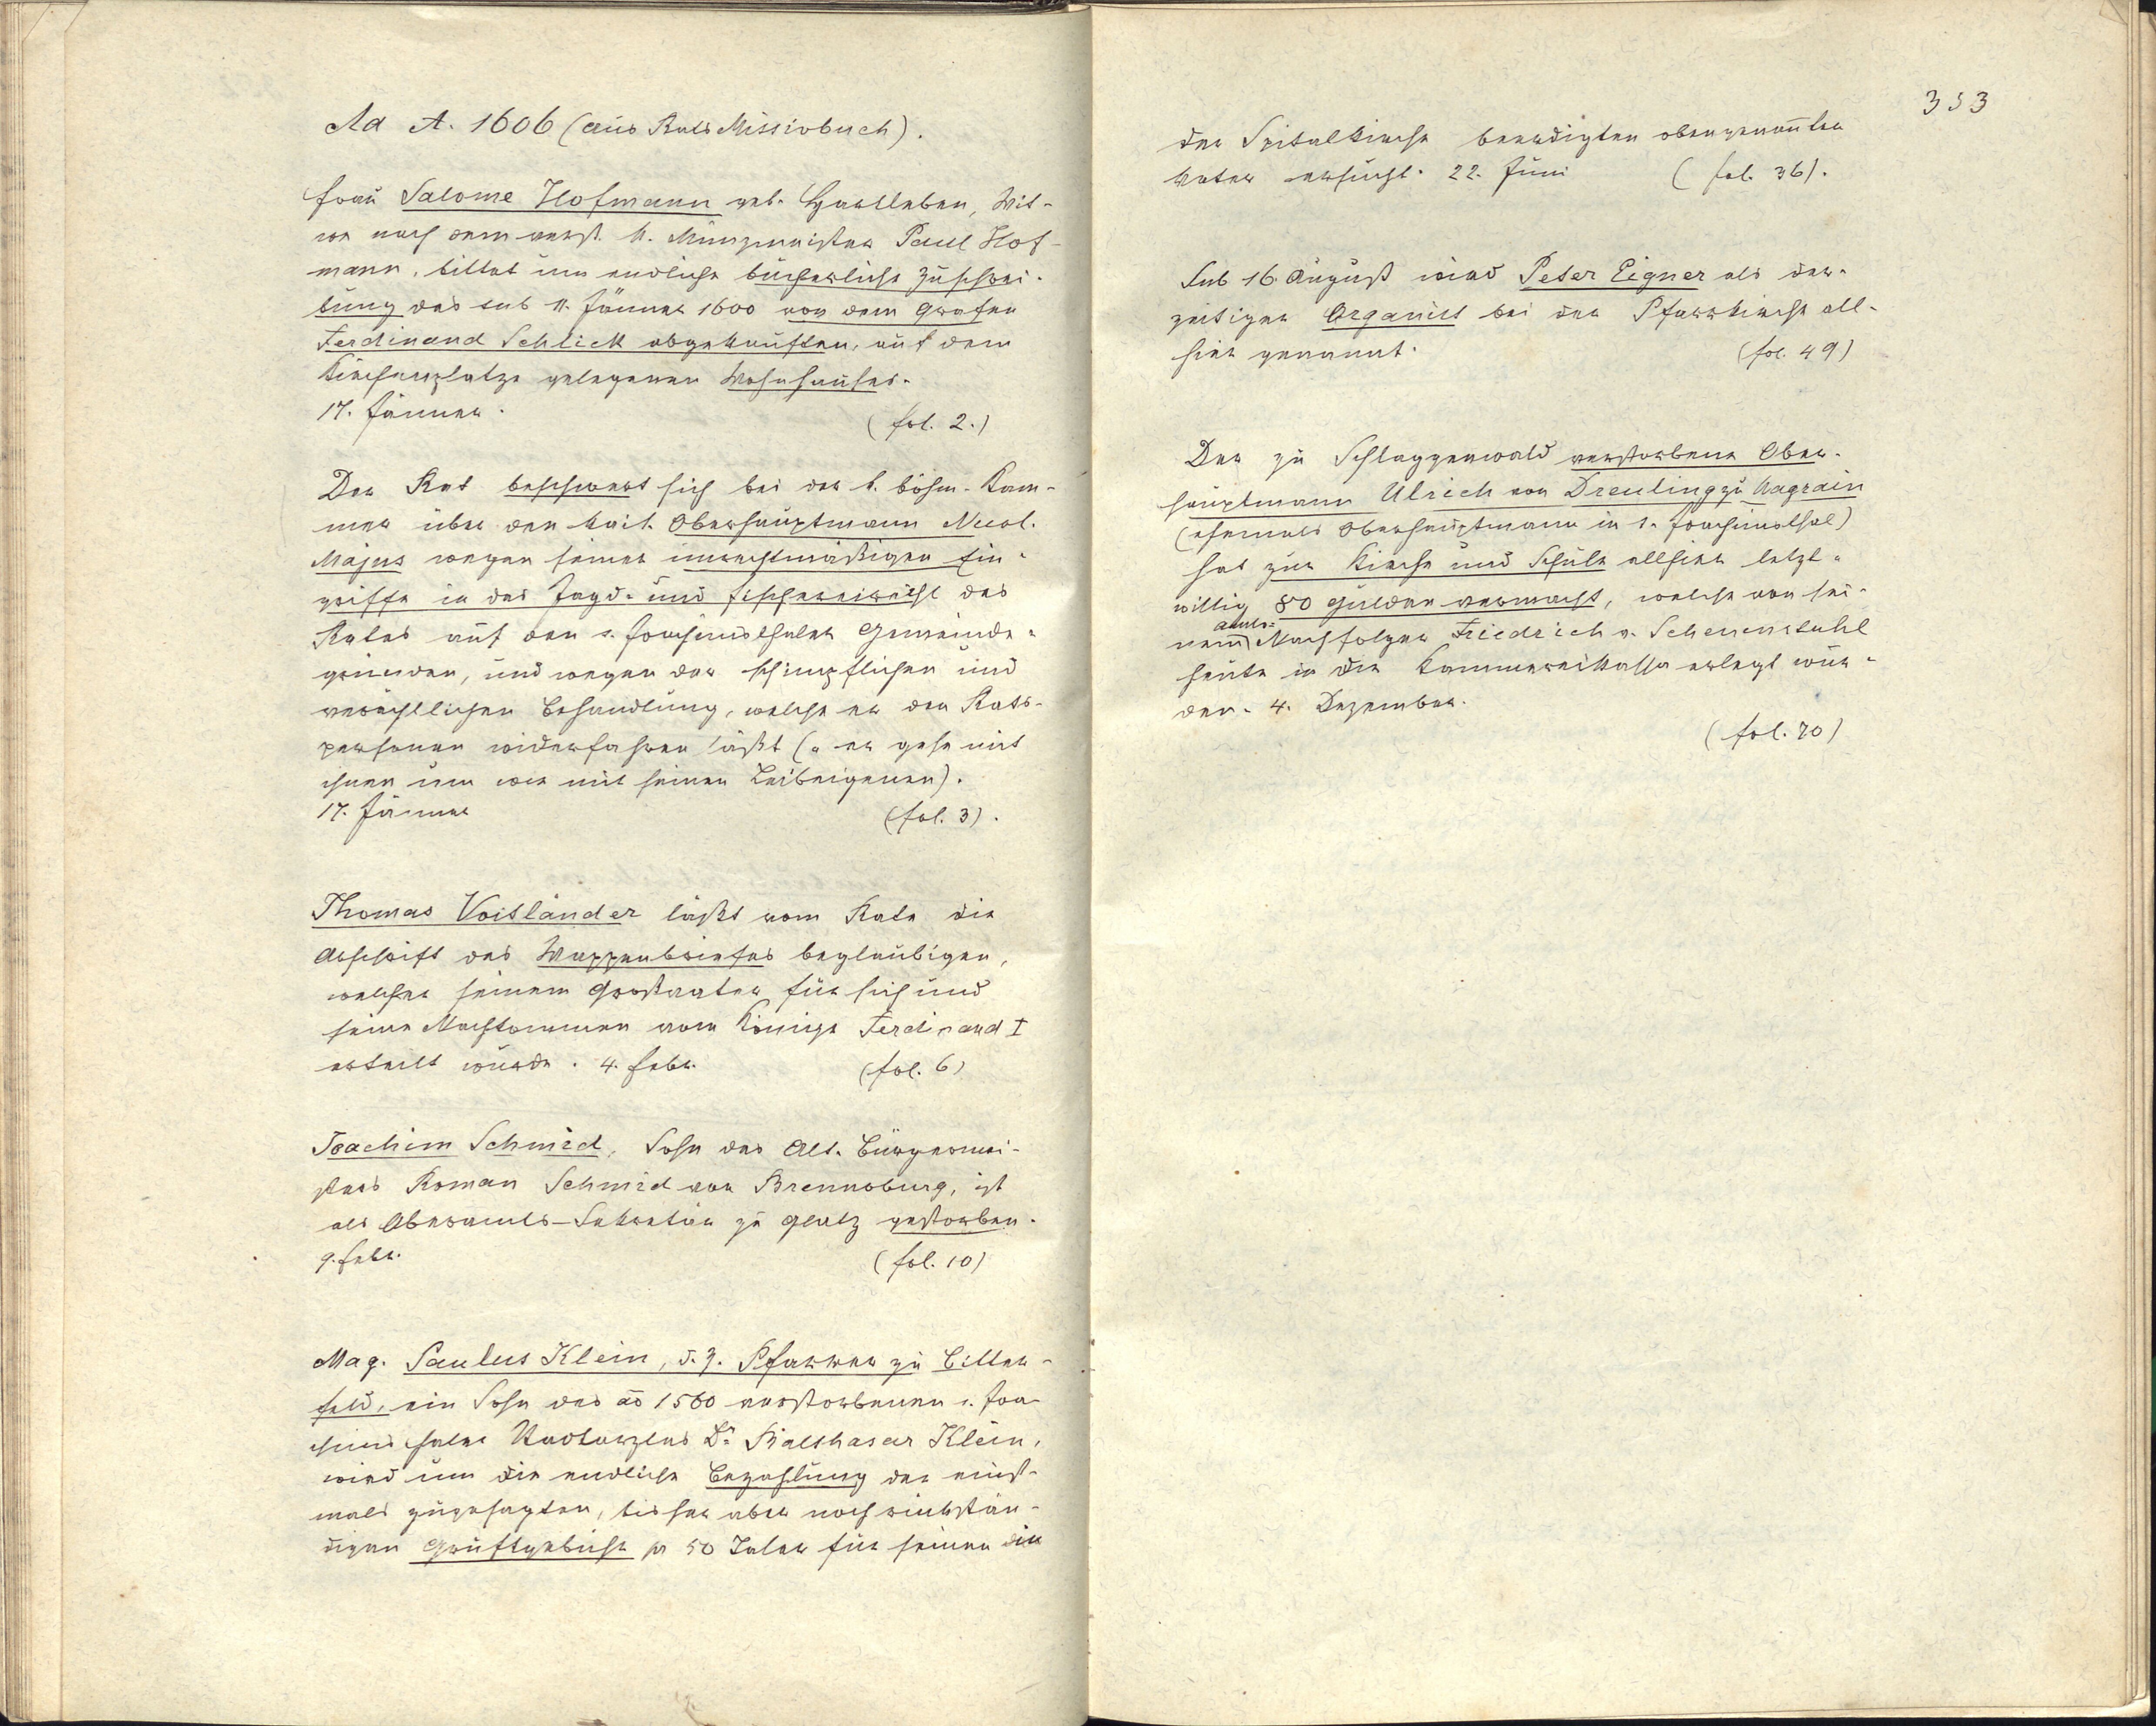 Ad A. 1606 (aus Rats Missivbuch).
Frau Salome Hofmann geb. Hartleben, Wit-
we nach dem verst. k. Münzmeister Paul Hof-
mann, bittet um endliche bücherliche Zuschrei-
bung des sub 11. Jänner 1600 von dem Grafen
Ferdinand Schlick abgekauften, auf dem
Kirchenplatze gelegenen Wohnhauses.
17. Jänner.
(fol. 2.)
Der Rat beschwert sich bei der k. böhm. Kam-
mer über den kais. Oberhauptmann Nicol.
Majus wegen seiner unrechtmäßigen Ein-
griffe in das Jagd- und Fischereirecht des
Rates auf den s. Joachimsthaler Gemeinde-
gründen, und wegen der schimpflichen und
verächtlichen Behandlung, welche er den Rats-
personen widerfahren läßt (" er gehe mit
ihnen um wie mit seinen Leibeigenen).
17. Jänner (fol. 3).
Thomas Voitländer läßt vom Rate die
Abschrift des Wappenbriefes beglaubigen,
welcher seinem Großvater für sich und
seine Nachkommen vom Könige Ferdinand I
erteilt wurde. 4. Febr. (fol. 6)
Joachim Schmid, Sohn des Alt-Bürgermei-
sters Roman Schmid von Brennoburg, ist
als Oberamts-Sekretär zu Glatz gestorben.
9. Febr. (fol. 10)
Mag. Paulus Klein, d. Z. Pfarrer zu Bitter-
feld, ein Sohn des ao 1560 verstorbenen s. Joa-
chimsthaler Stadtarztes Dr. Balthasar Klein,
wird um die endliche Bezahlung der einst-
mals zugesagten, bisher aber noch rückstän-
digen Gruftgebühr pr 50 Taler für seinen in
353
der Spitalkirche beerdigten obengenannten
Vater ersucht. 22. Juni (fol. 36).
Sub 16. August wird Peter Eigner als der-
zeitiger Organist bei der Pfarrkirche all-
hier genannt. (fol. 49)
Der zu Schlaggenwald verstorbene Ober-
hauptmann Ulrich von Dreuling zu Hagrain
(ehemals Oberhauptmann in s. Joachimsthal)
hat zur Kirche und Schule allhier letzt-
willig 80 Gulden vermacht, welche von sei-
nem Amts-Nachfolger Friedrich v. Scheuenstuhl
heute in die Kammereikassa erlegt wur-
den. 4. Dezember.
(fol. 70)